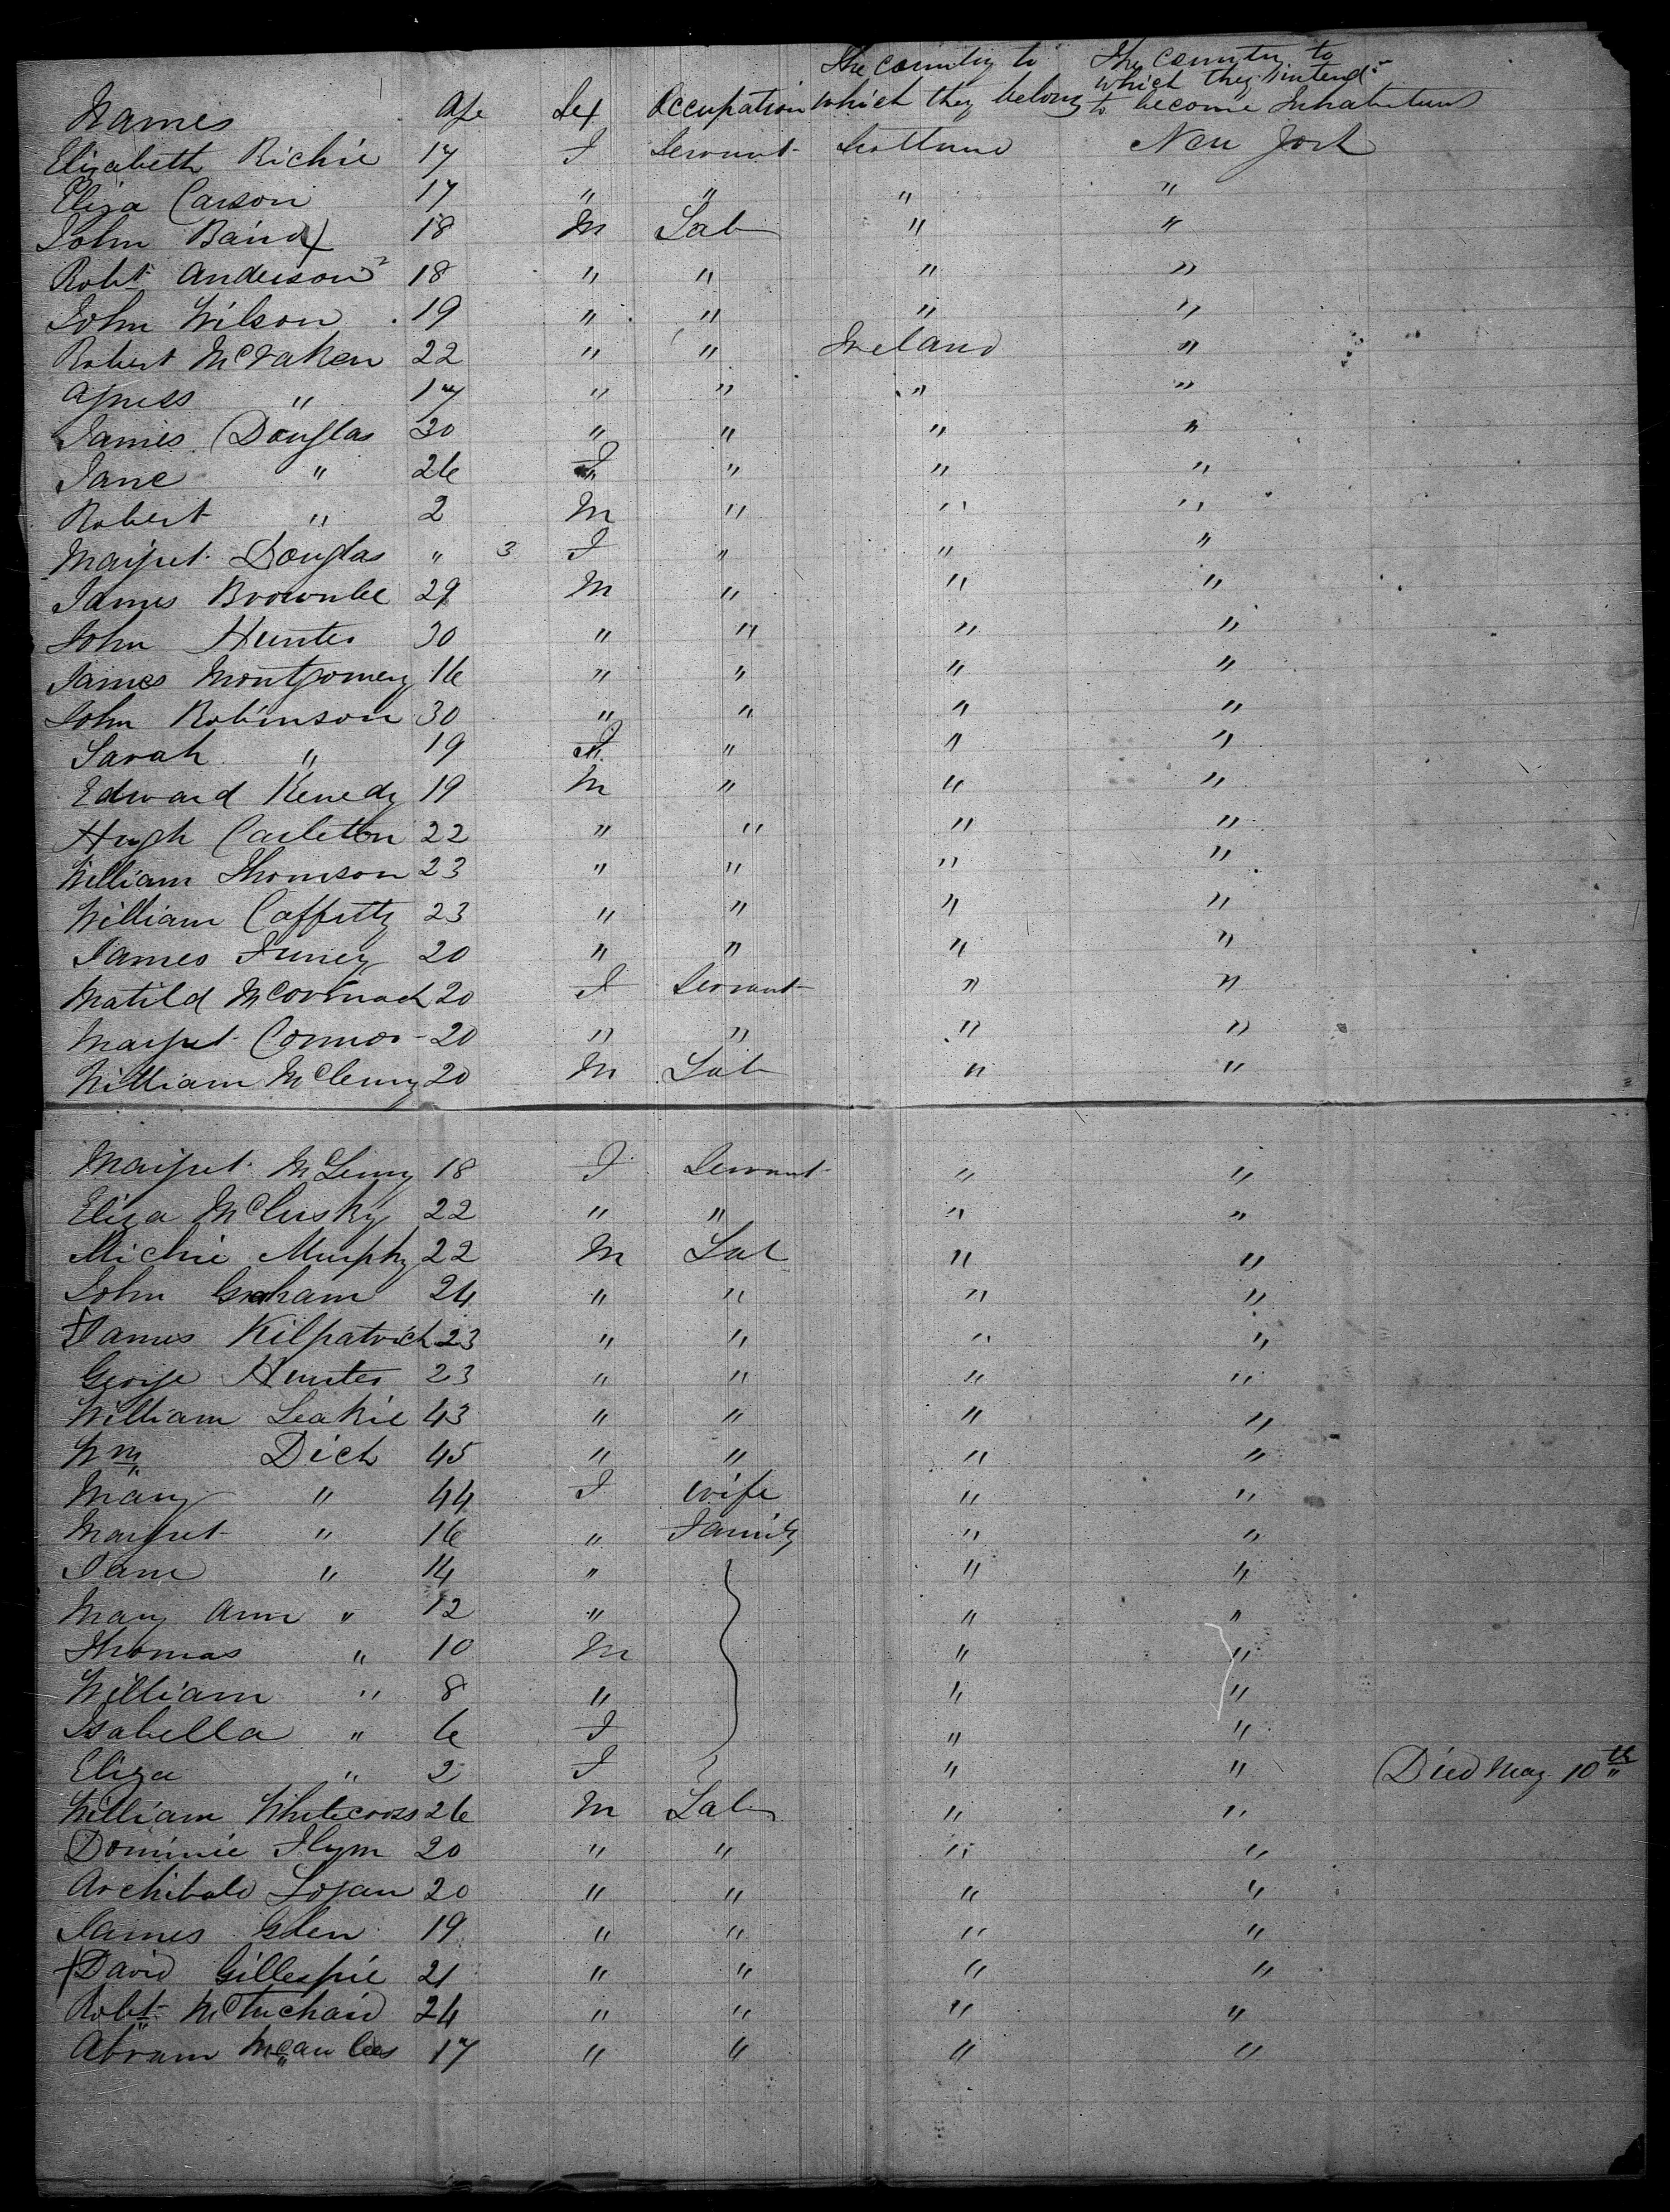 The country to The country to
which they intend
Names Age Sex Occupation which they belong to become Inhabitants
Elizabeth Richie 17 F Servant Scotland New York
Eliza Carson 17 " " " "
John Baird 18 M Lab " "
Robt Anderson 18 " " " "
John Wilson 19 " " " "
Robert McCraken 22 " " Ireland "
Agness " 17 " " " "
James Douglas 30 " " " "
Jane " 26 F " " "
Robert " 2 M " " "
Margret Douglas " 3 F " " "
James Brownlee 29 M " " "
John Hunter 30 " " " "
James Montgomery 16 " " " "
John Robinson 30 " " " "
Sarah " 19 F " " "
Edward Kenedy 19 M " " "
Hugh Carleton 22 " " " "
William Thomson 23 " " " "
William Caffrty 23 " " " "
James 20 " " " "
Matild McCormack 20 F Servant " "
Margret Connor 20 " " " "
William McCleny 20 M Lab " "
Margret McLeny 18 F Servant " "
Eliza McClusky 22 " " " "
Michie Murphy 22 M Lab " "
John Graham 24 " " " "
James Kilpatrick 23 " " " "
George Hunter 23 " " " "
William Leakie 43 " " " "
Wm Dick 45 " " " "
Mary " 44 F wife " "
Margret " 16 " Family " "
Jane " 14 " " "
Mary Ann " 12 " " "
Thomas " 10 M " "
William " 8 " " "
Isabella " 6 F " "
Eliza " 2 F " " Died May 10th
William Whitecross 26 M Lab " "
Dominic Flynn 20 " " " "
Archibald Logan 20 " " " "
James Glen 19 " " " "
David Gillespie 21 " " " "
Robt 24 " " " "
Abram McCaulees 17 " " " "